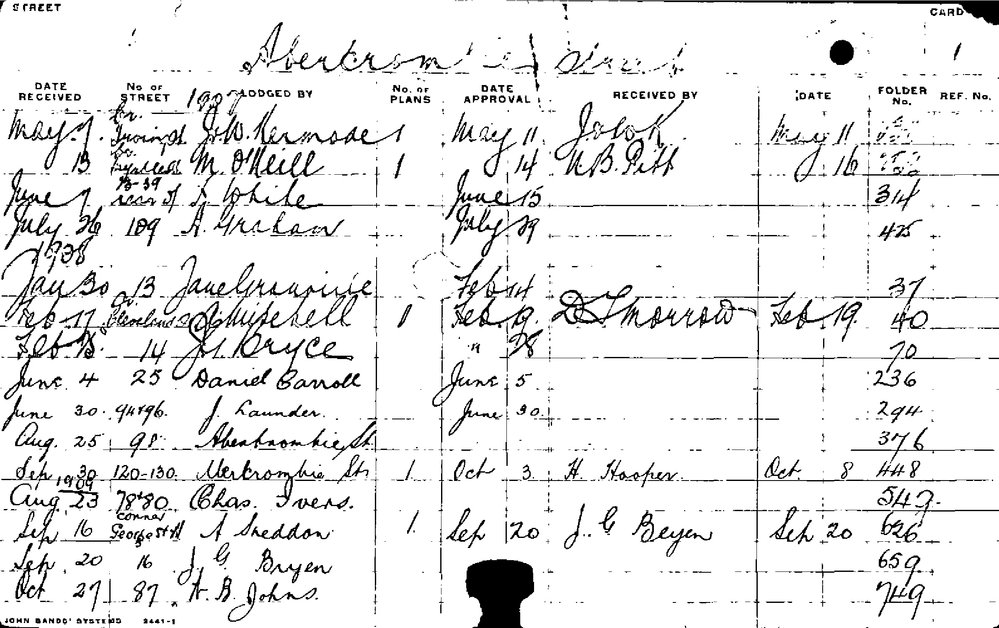 STREET CARD
Abercrombie Street 1
DATE RECEIVED No OF STREET LODGED BY No. OF PLANS DATE APPROVAL RECEIVED BY DATE FOLDER No. REF. No.
May 7 Cr. Irving St J. W. Kermode 1 May 11 May 11
13 Cr. M. O'Neill 1 14 N. B. Pitt 16
June 7 rear of White June 15 314
July 26 109 A. Graham July 29 425
1908
Jan 30 13 Jane Feb 14 37
Feb 17 Cr. Cleveland St Mitchell 1 Feb. 19. D T Morrow Feb. 19. 40
Feb 14 Bryce " 28 70
June 4 25 Daniel Carroll June 5 236
June 30. 94 & 96. J. Launder. June 30. 294
Aug. 25 98 Abercrombie St 376
Sep 30 120-130. Abercrombie St. 1 Oct 3 H. Hooper. Oct. 8 448
1909
Aug 23 78 & 80 Chas. Ivers. 549.
Sep 16 corner George St A Sneddon 1. Sep 20 J. G Beyen Sep 20 626
Sep 20 16 J. G Bryen 659
Oct 27 87 H. B. Johns. 749
JOHN SANDS' SYSTEMS 2441-1